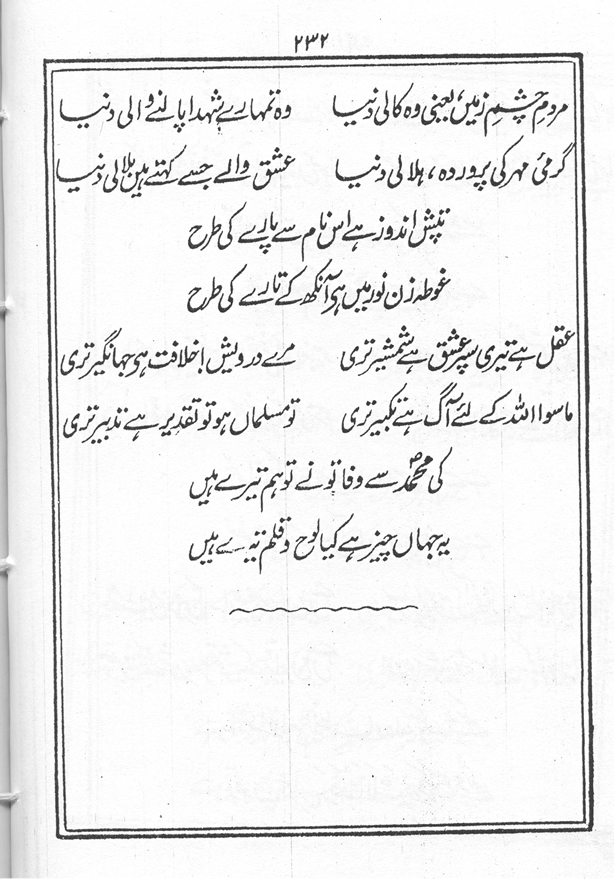 ۲۳۲
مردمِ چشمِ زمیں، یعنی وہ کالی دنیا وہ تمہارے شہدا پالنے والی دنیا
گرمیٔ مہر کی پروردہ، ہلالی دنیا عشق والے جسے کہتے ہیں بلالی دنیا
تپش اندوز ہے اس نام سے پارے کی طرح
غوطہ زن نور میں ہی آنکھ کے تارے کی طرح
عقل ہے تیری سپر عشق ہے شمشیر تری مرے درویش! خلافت ہی جہانگیر تری
ماسوا اللہ کے لئے آگ ہے تکبیر تری تو مسلماں ہو تو تقدیر ہے تدبیر تری
کی محمدؐ سے وفا تو نے تو ہم تیرے ہیں
یہ جہاں چیز ہے کیا لوح و قلم تیرے ہیں